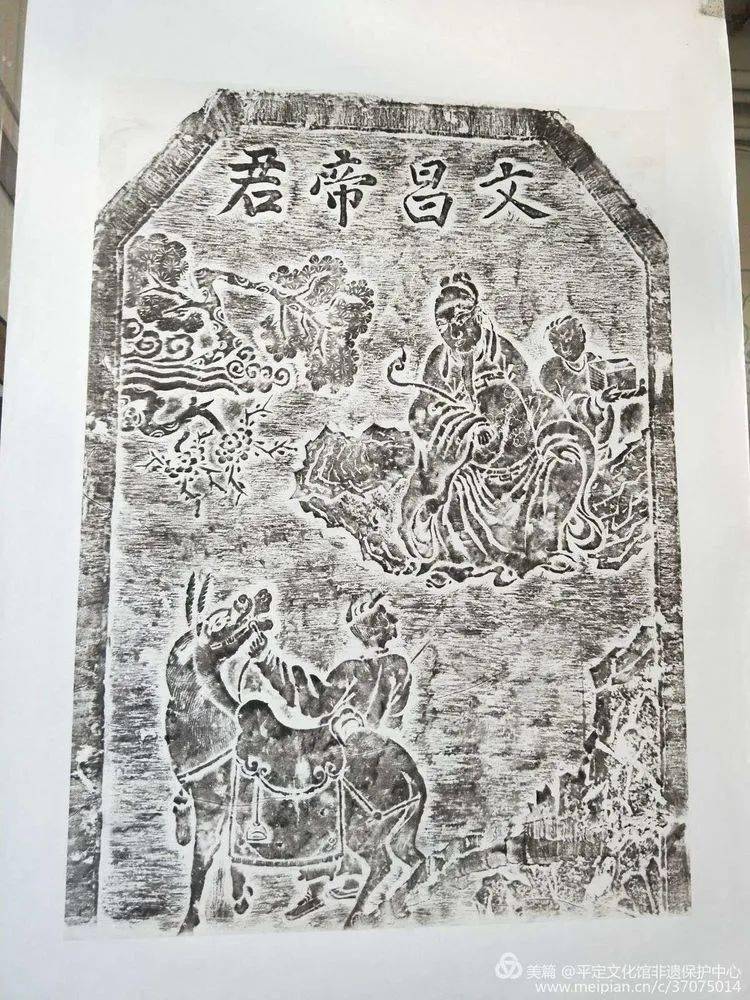 文昌帝君
美篇 @平定文化馆非遗保护中心
www.meipian.cn/c/37075014